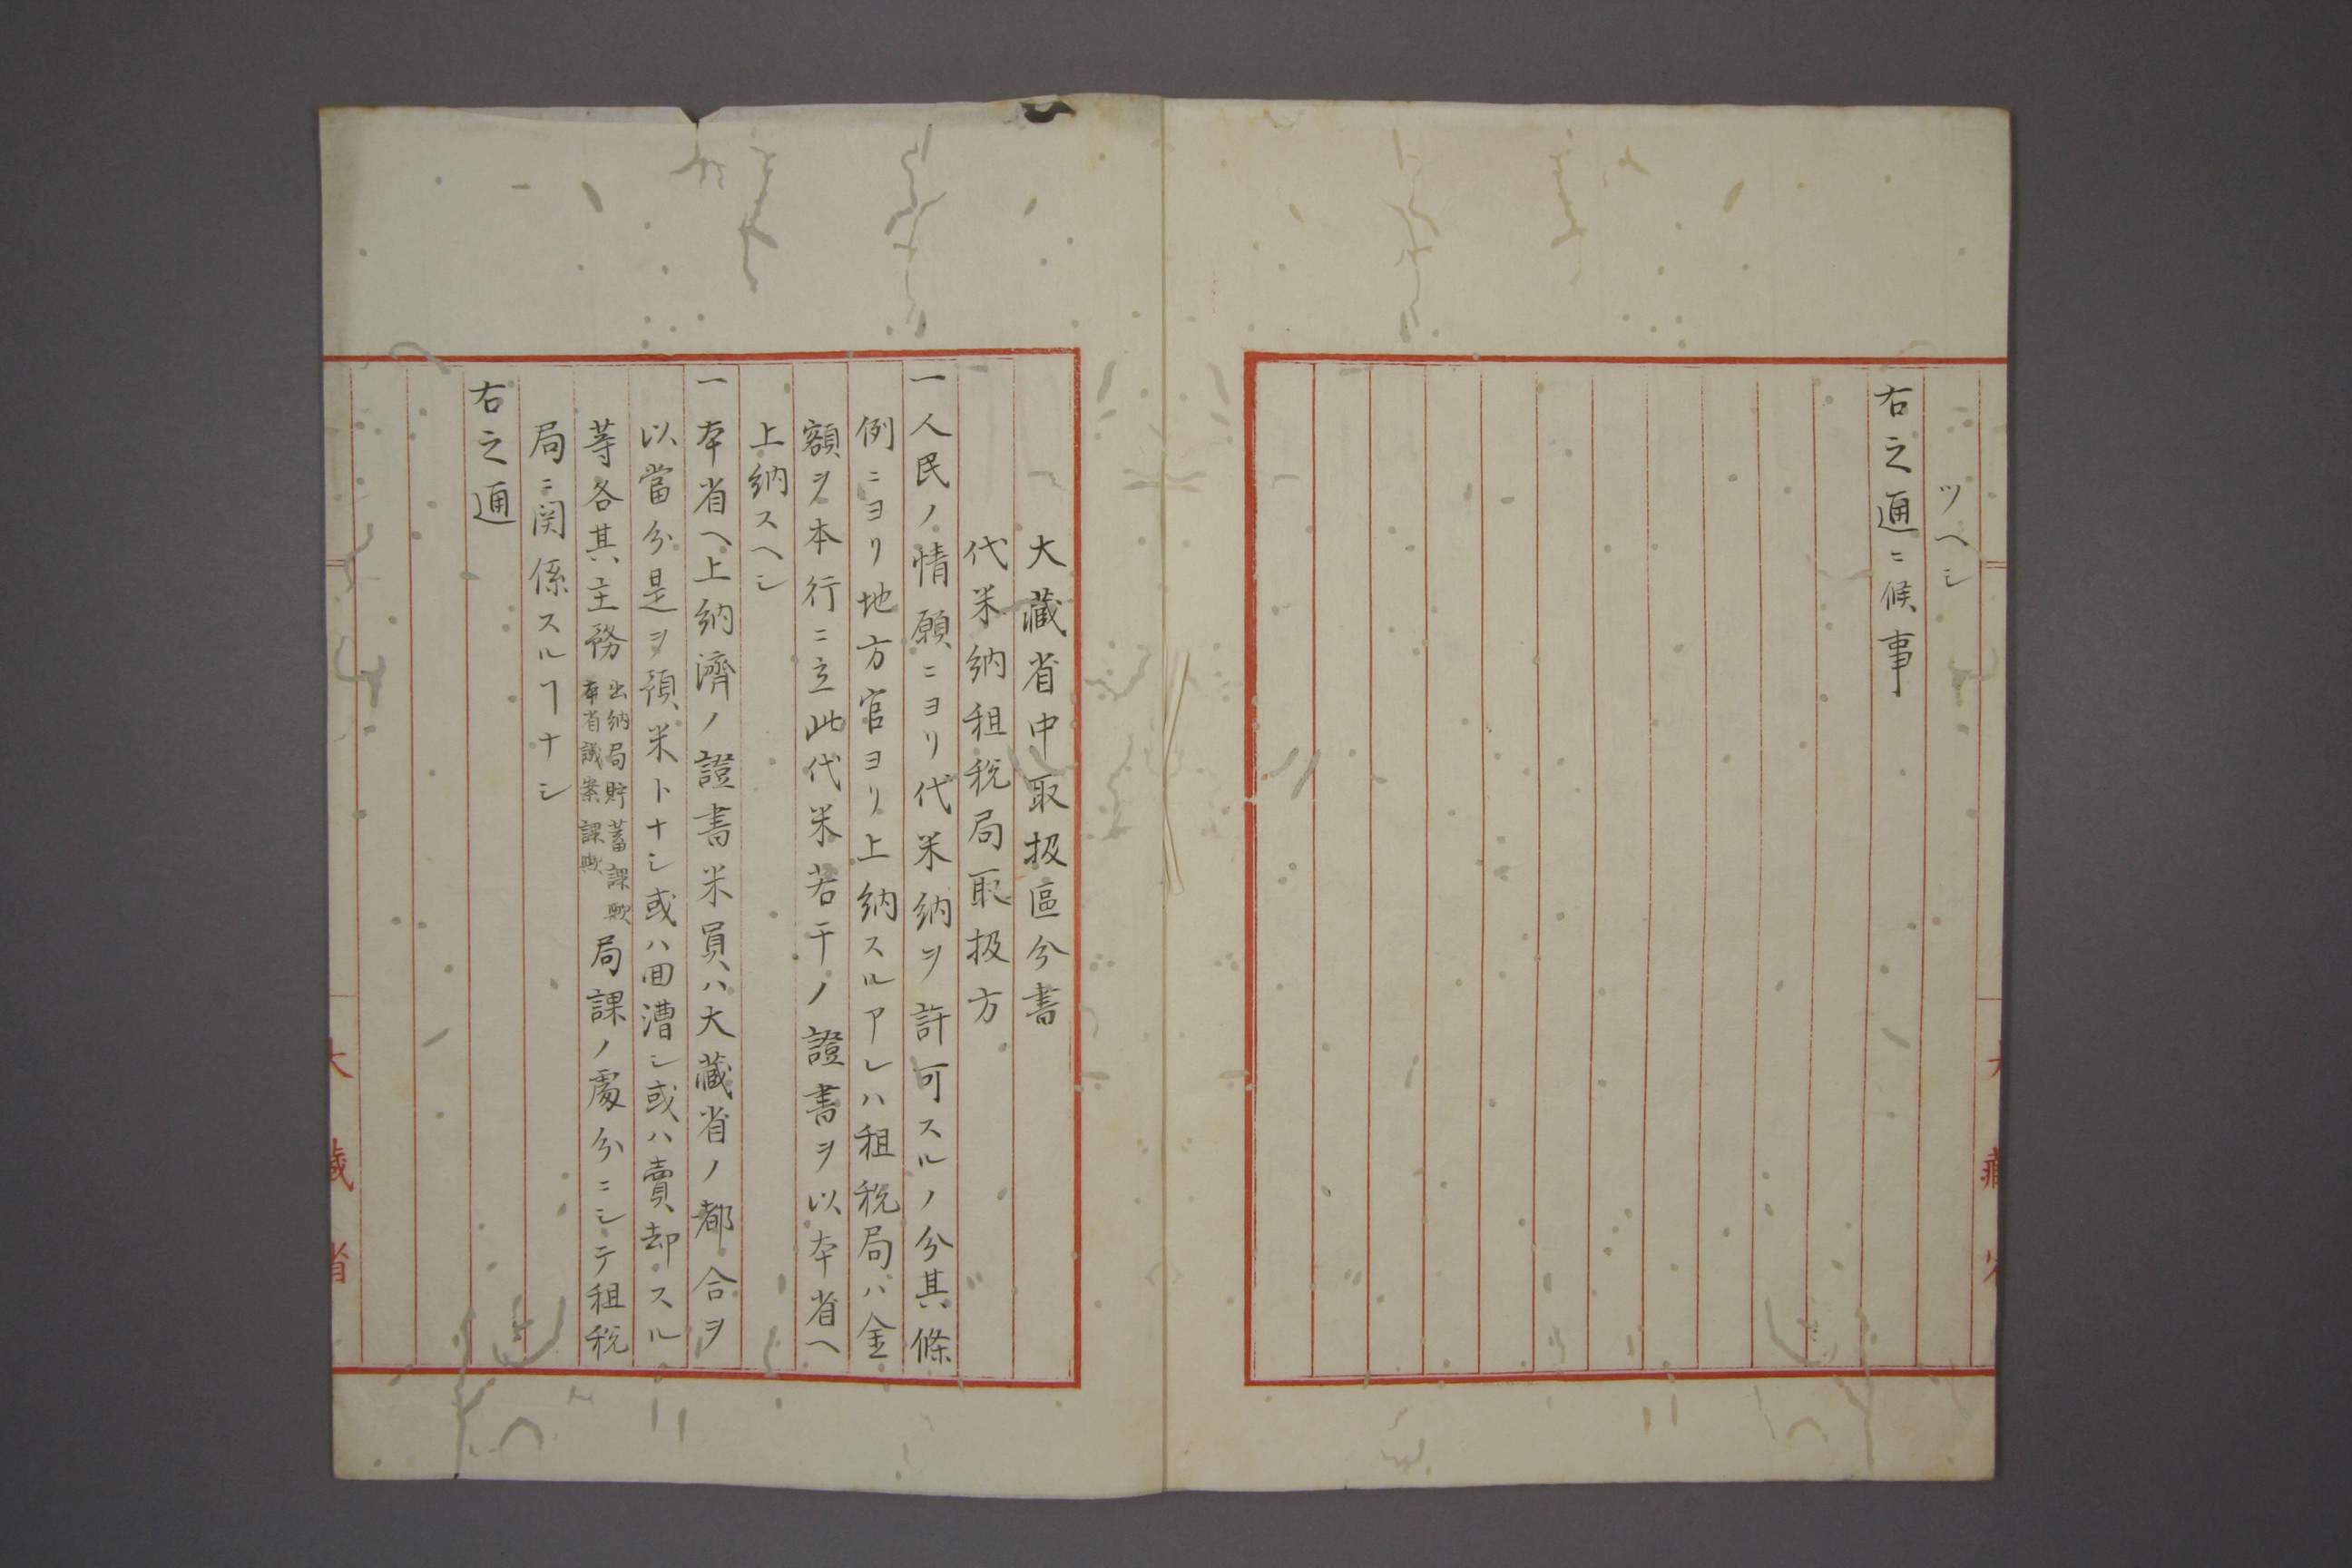 ツヘシ
右之通ニ候事
大藏省中取扱區分書
代米納租税局取扱方
一人民ノ情願ニヨリ代米納ヲ許可スルノ分其條
例ニヨリ地方官ヨリ上納スルアレハ租税局ハ金
額ヲ本行ニ立此代米若干ノ證書ヲ以本省ヘ
上納スヘシ
一本省ヘ上納濟ノ證書米員ハ大藏省ノ都合ヲ
以當分是ヲ預米トナシ或ハ回漕シ或ハ賣却スル
等各其主務
出納局貯蓄課歟
本省議案課歟
局課ノ處分ニシテ租税
局ニ関係スルヿナシ
右之通
大藏省